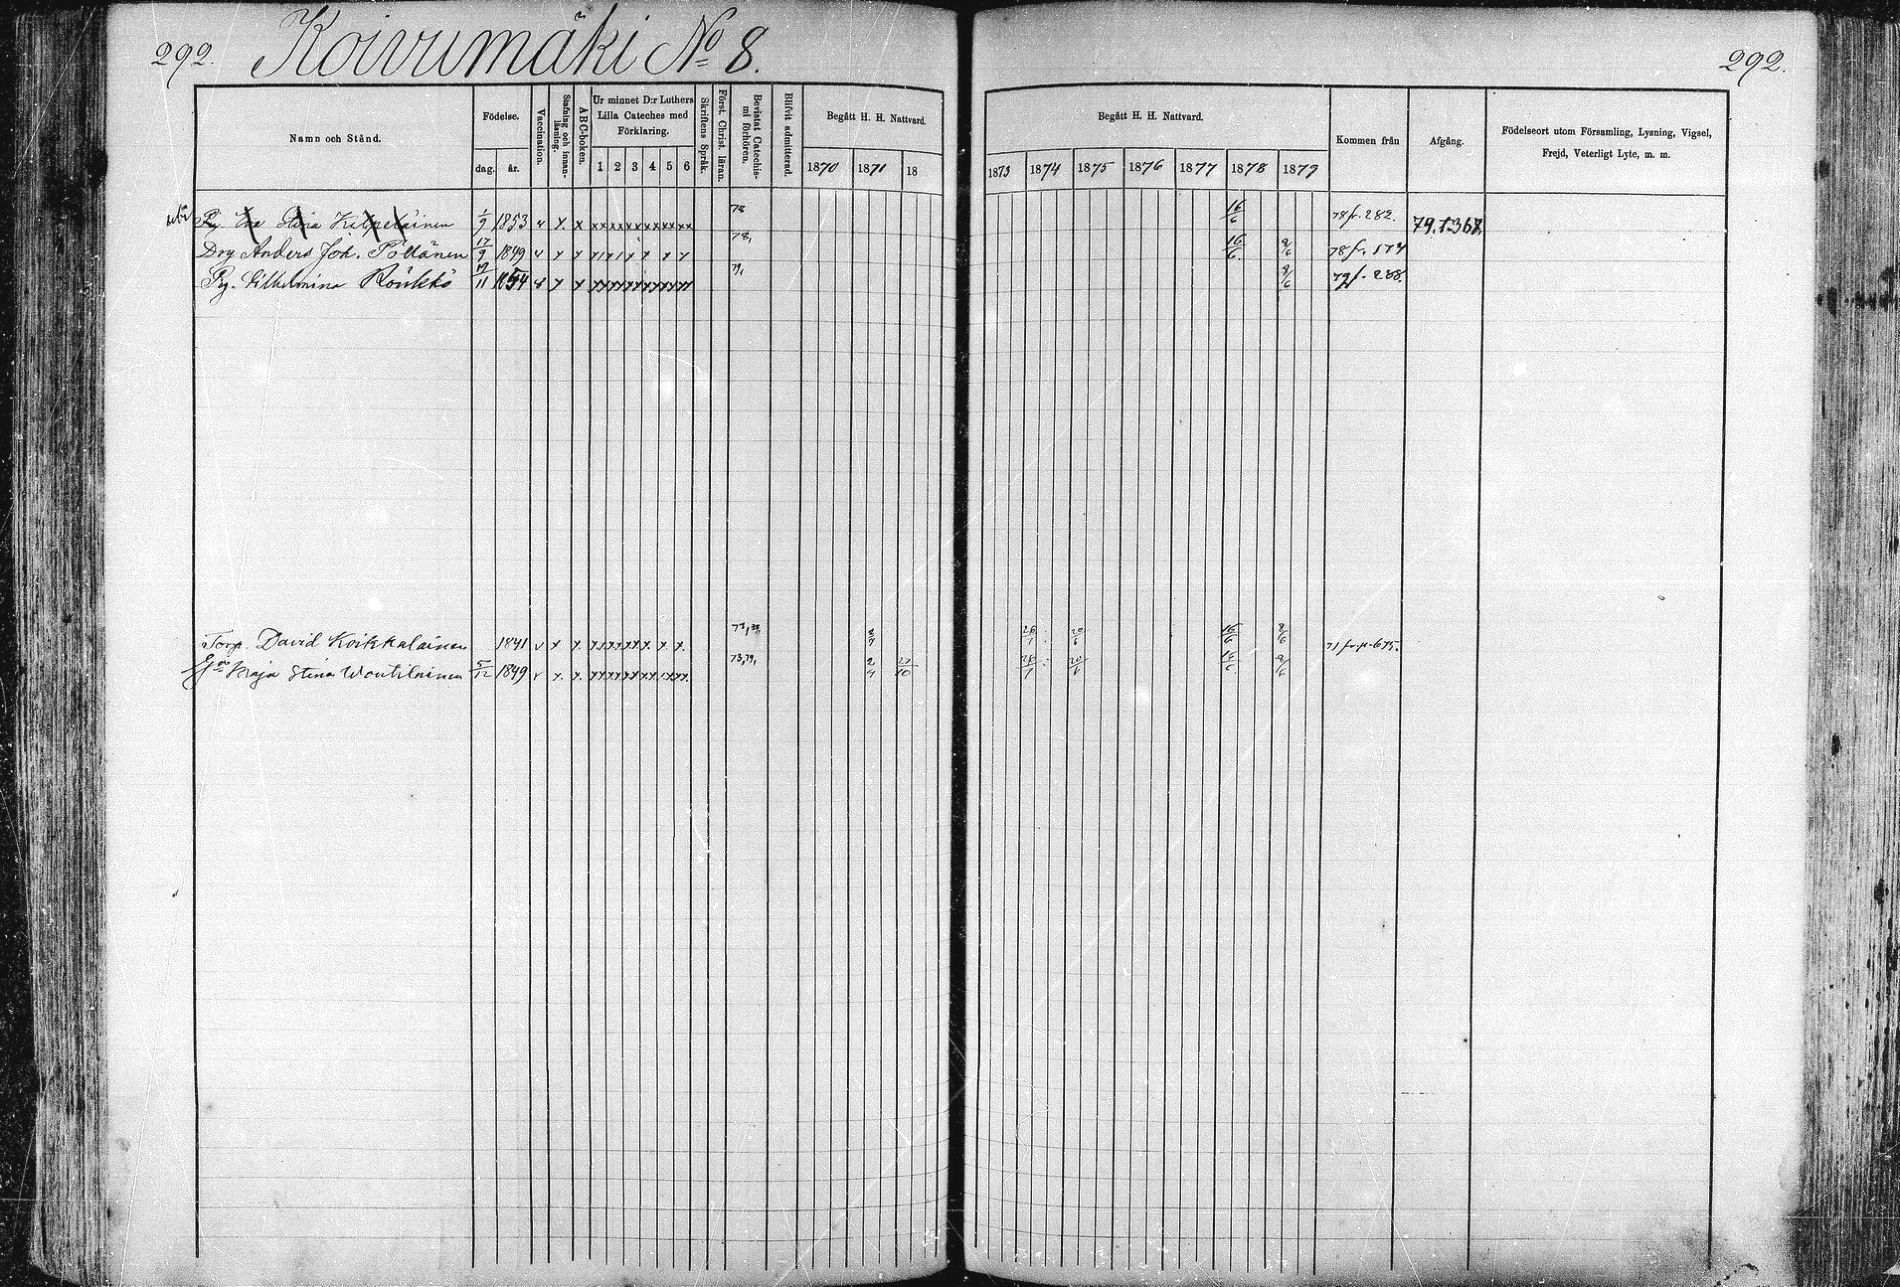 292. Koivumäki No 8. 292.
Namn och Stånd. Födelse. dag. år. Vaccination. Stafning och innanläsning. ABC-boken. Ur minnet D:r Luthers Lilla Cateches med Förklaring. 1 2 3 4 5 6 Skriftens Språk. Först. Christ. läran. Bevistat Catechismi förhören. Blifvit admitterad. Begått H. H. Nattvard. 1870 1871 18
Begått H. H. Nattvard. 1873 1874 1875 1876 1877 1878 1879 Kommen från Afgång. Födelseort utom Församling, Lysning, Vigsel, Frejd, Veterligt Lyte, m. m.
Pig. Eva Stina Kilpeläinen 1/9 1853 v x. x xxxxxxxxxxxx 78 16/6 78 fr. 282. 79.1367.
Drg Anders Joh. Pöllänen 17/9 1849 v x x 78, 16/6. 8/6 78 f. 174
Pig. Wilhelmina Rönkkö 19/11 1854 v x x 79, 8/6 79 f. 288.
Torp. David Koikkalainen 1841 v x x. 26/7 20/6 16/6 8/6 71 fr. p. 675.
Maja Stina Woutilainen 5/12 1849 v x. x. 73,79, 2/4 27/10 26/7 20/6 16/6. 8/6